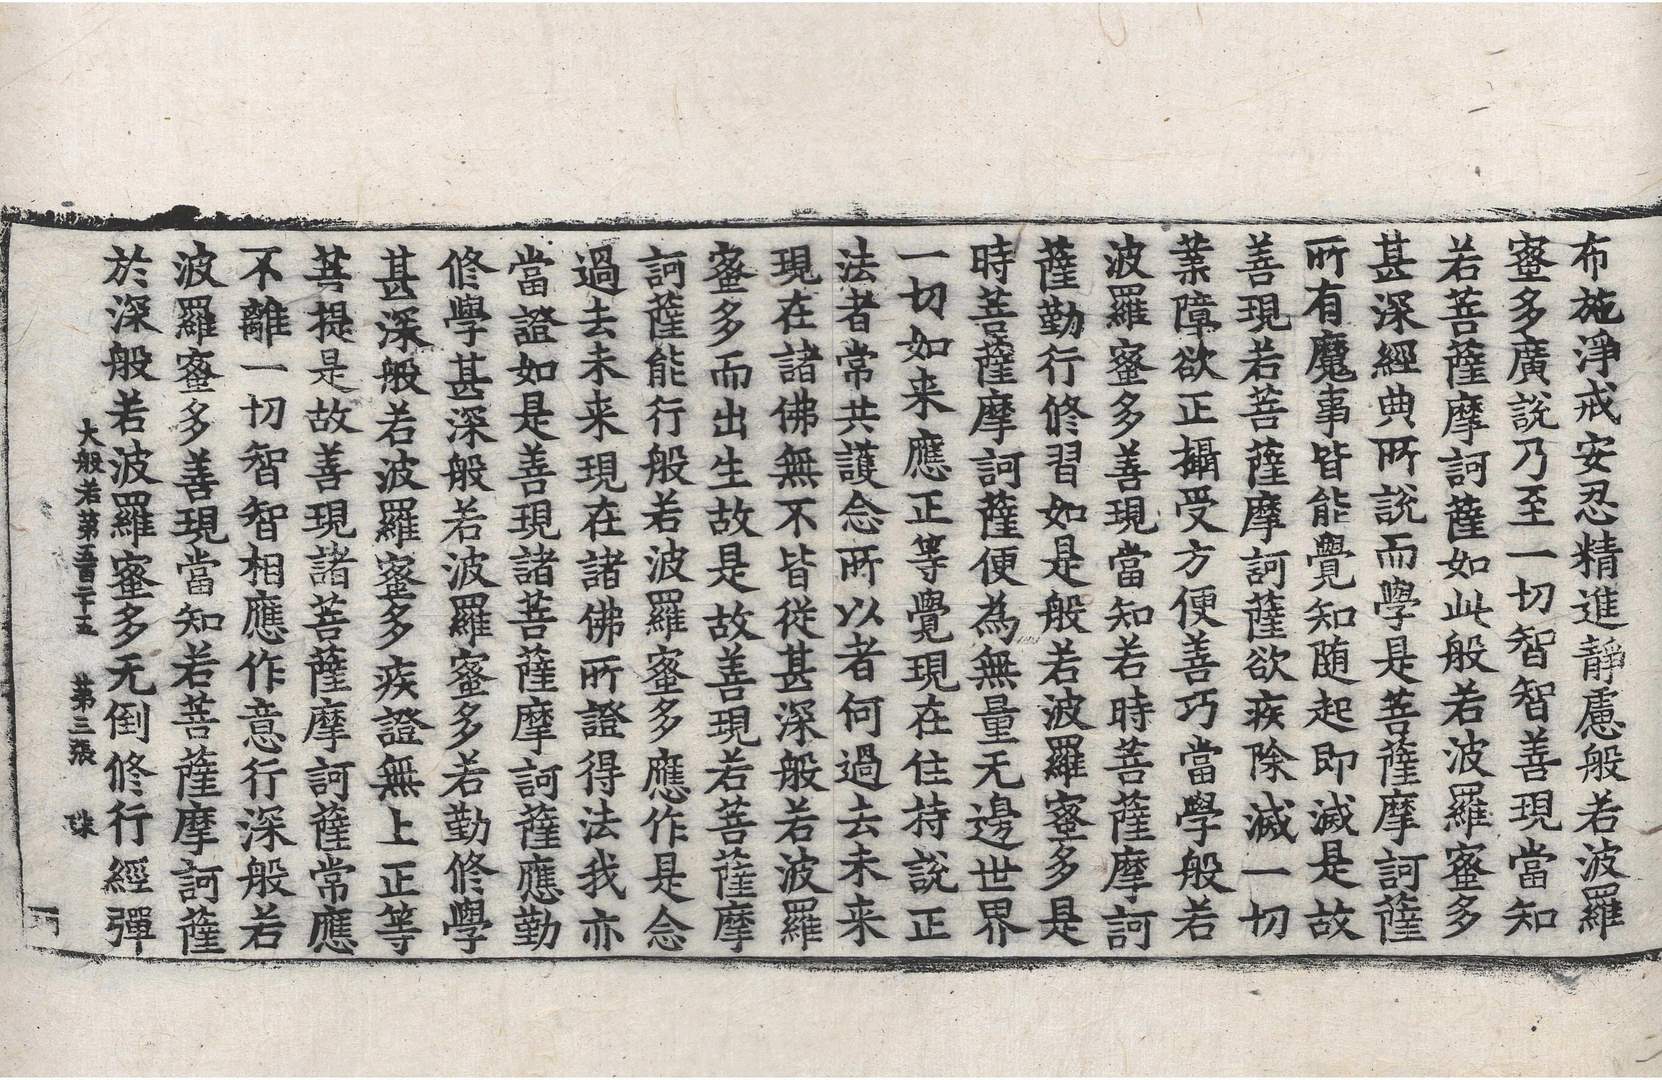 布施淨戒安忍精進靜慮般若波羅
蜜多廣說乃至一切智智善現當知
若菩薩摩訶薩如此般若波羅蜜多
甚深經典所說而學是菩薩摩訶薩
所有魔事皆能覺知随起即滅是故
善現若菩薩摩訶薩欲疾除滅一切
業障欲正攝受方便善巧當學般若
波羅蜜多善現當知若時菩薩摩訶
薩勤行修習如是般若波羅蜜多是
時菩薩摩訶薩便為無量无邊世界
一切如来應正等覺現在住持說正
法者常共護念所以者何過去未来
現在諸佛無不皆從甚深般若波羅
蜜多而出生故是故善現若菩薩摩
訶薩能行般若波羅蜜多應作是念
過去未来現在諸佛所證得法我亦
當證如是善現諸菩薩摩訶薩應勤
修學甚深般若波羅蜜多若勤修學
甚深般若波羅蜜多疾證無上正等
菩提是故善現諸菩薩摩訶薩常應
不離一切智智相應作意行深般若
波羅蜜多善現當知若菩薩摩訶薩
於深般若波羅蜜多无倒修行經彈
大般若第五百二十五 第三張 珠